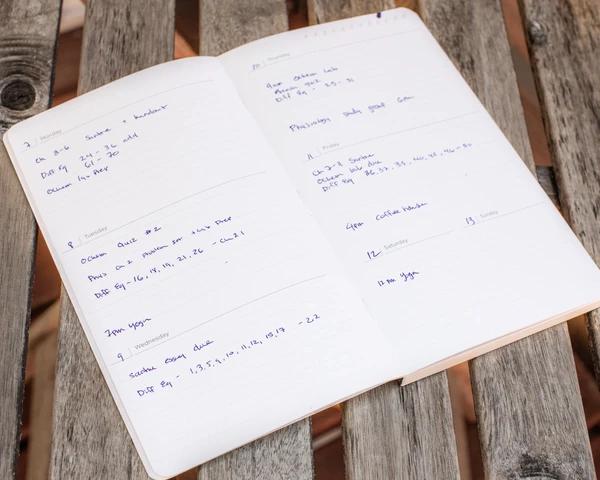 7 Monday
Ch 3-6 Sartre + handout
Diff Eq 24-36 odd
61-70
Ochem lab Prep
8 Tuesday
Ochem Quiz #2
Phys Ch 2 Problem set + Lab Prep
Diff Eq - 16, 18, 19, 21, 26 - Ch 2.1
7pm yoga
9 Wednesday
Sartre essay due
Diff Eq - 1, 3, 5, 9, 10, 11, 12, 15, 17 - 2.2
10 Thursday
9am Ochem Lab
Quiz
Diff Eq - 25-31
Physiology study group 6pm
11 Friday
Ch 7-8 Sartre
Ochem lab due
Diff Eq 36, 37, 39, 40, 45, 46-50
4pm coffee
12 Saturday
12pm yoga
13 Sunday